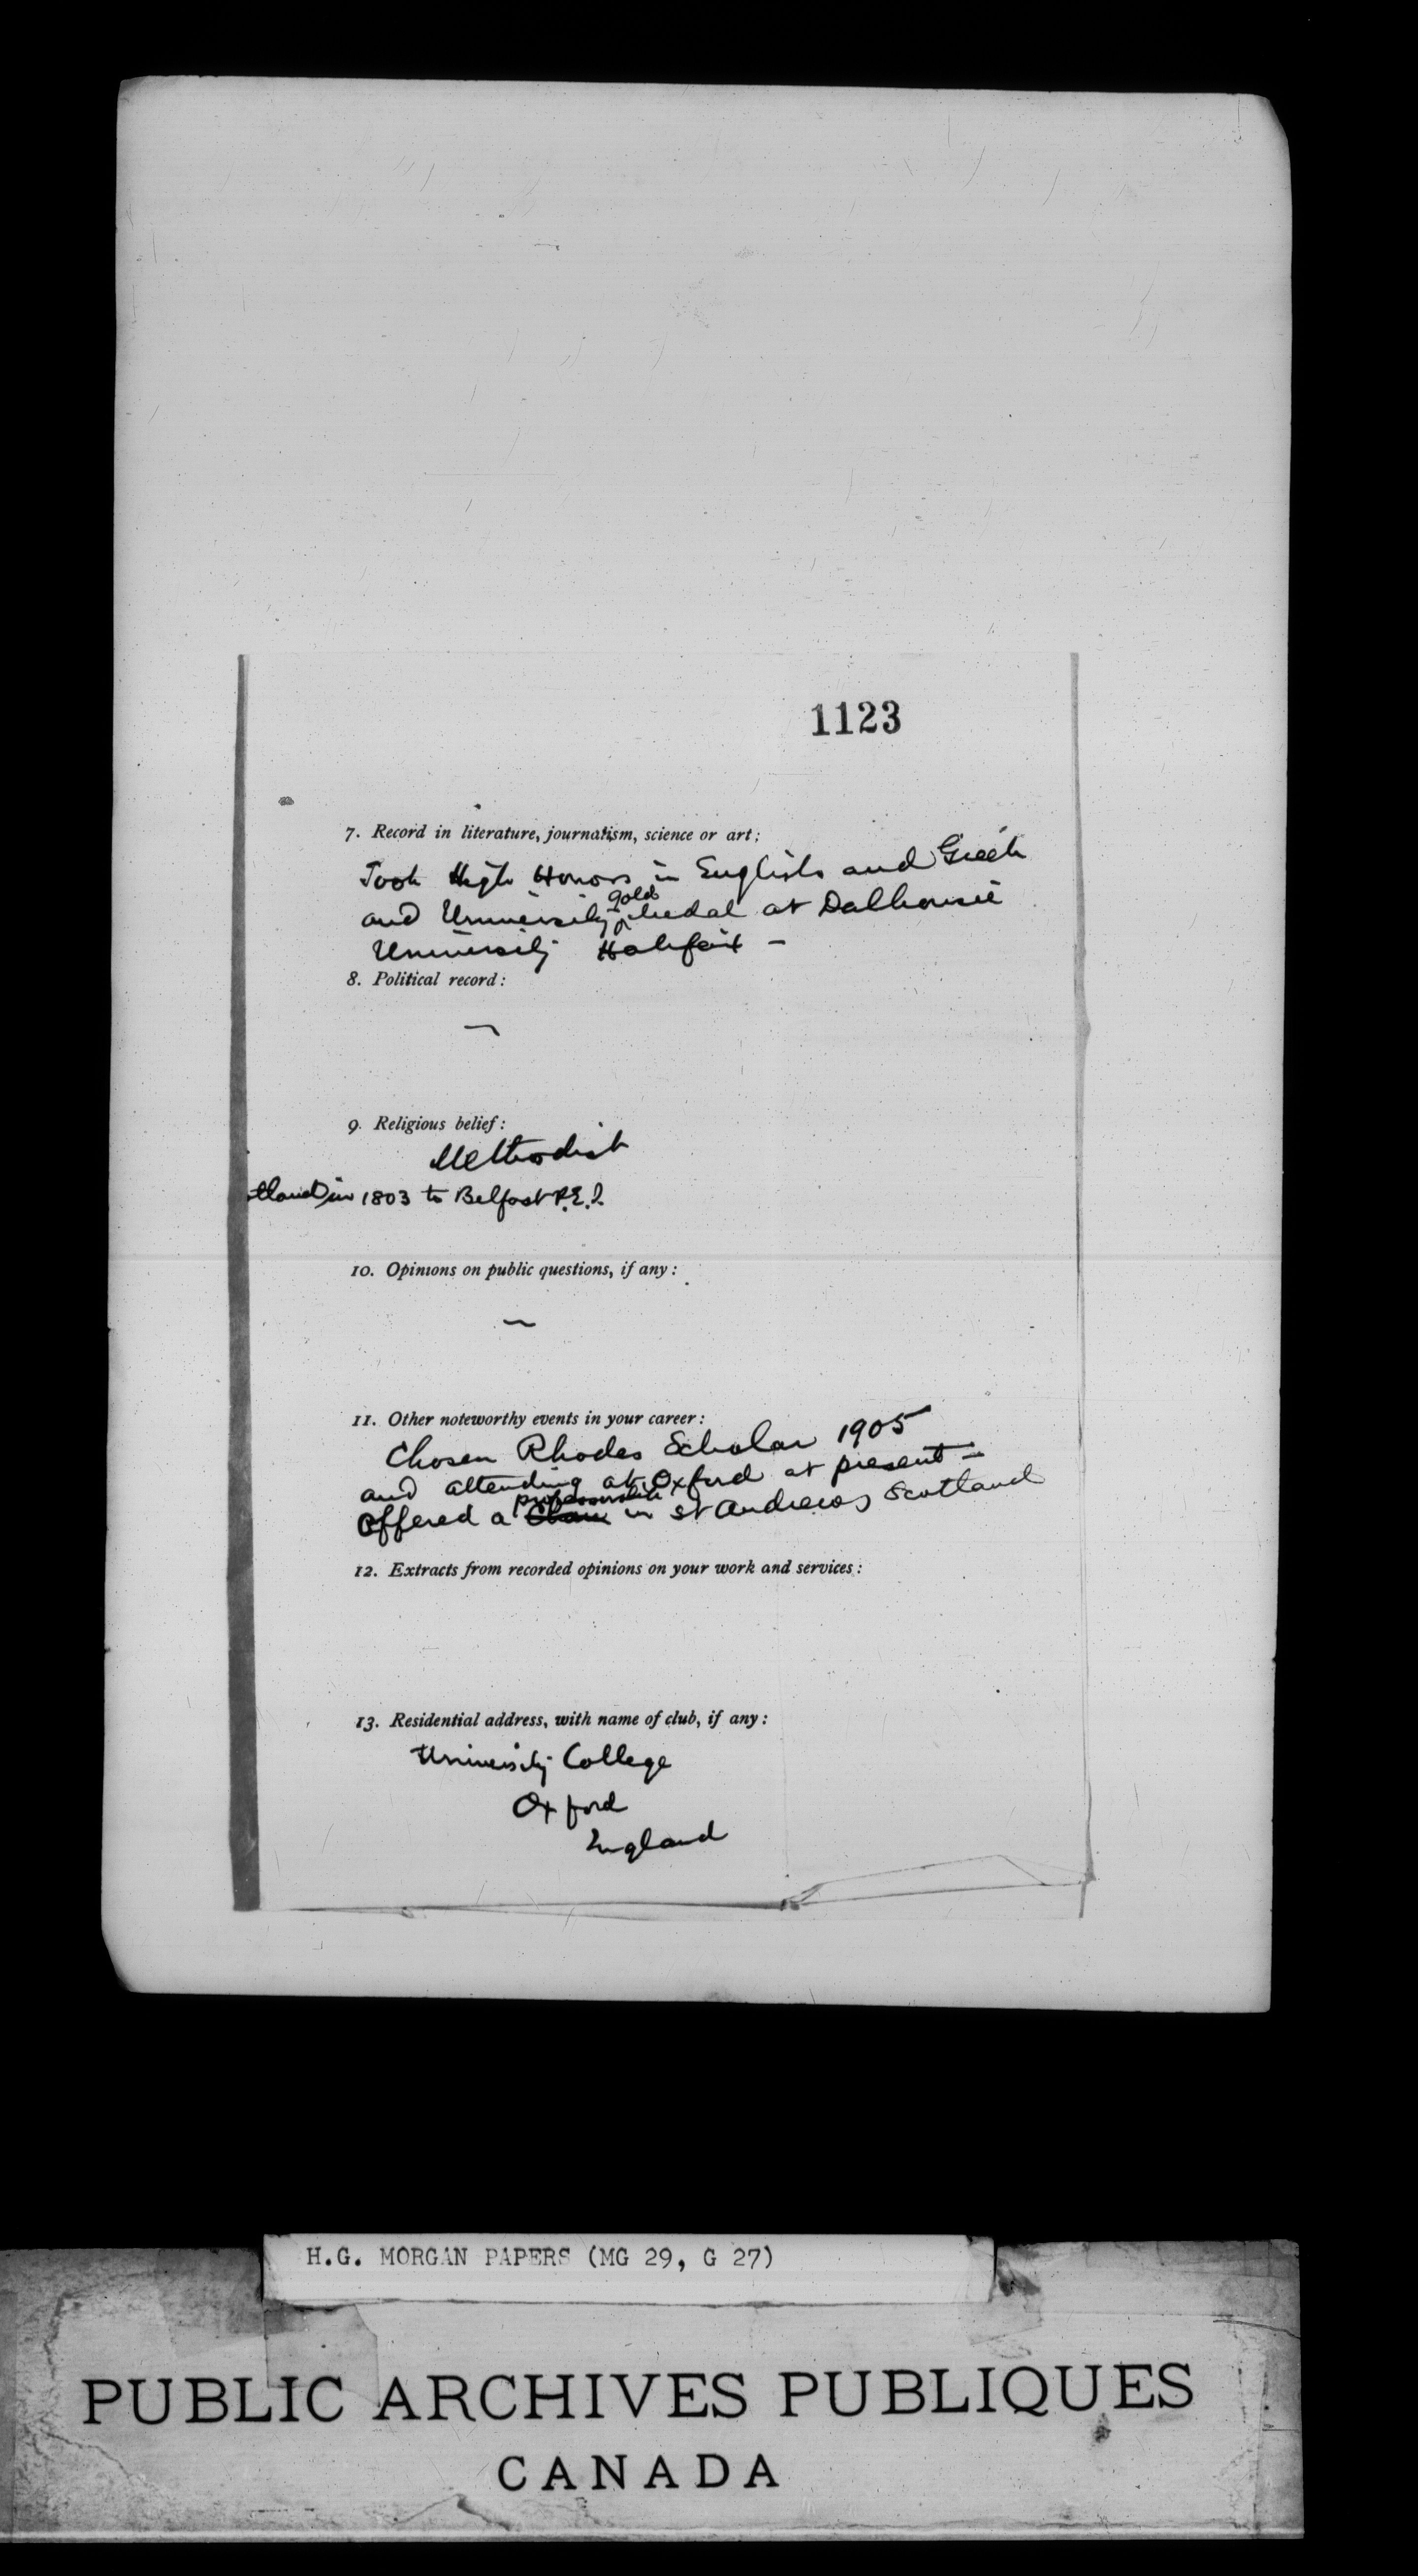 1123
7. Record in literature, journalism, science or art:
Took High Honors in English and Greek
gold
and University Medal at Dalhousie
University Halifax –
8. Political record:
—
9. Religious belief:
Methodist
otland in 1803 to Belfast P.E.I.
10. Opinions on public questions, if any:
—
11. Other noteworthy events in your career:
Chosen Rhodes Scholar 1905
and attending at Oxford at present –
professorship
Offered a Chair in St Andrews Scotland
12. Extracts from recorded opinions on your work and services:
13. Residential address, with name of club, if any:
University College
Oxford
England
H.G. MORGAN PAPERS (MG 29, G 27)
PUBLIC ARCHIVES PUBLIQUES
CANADA